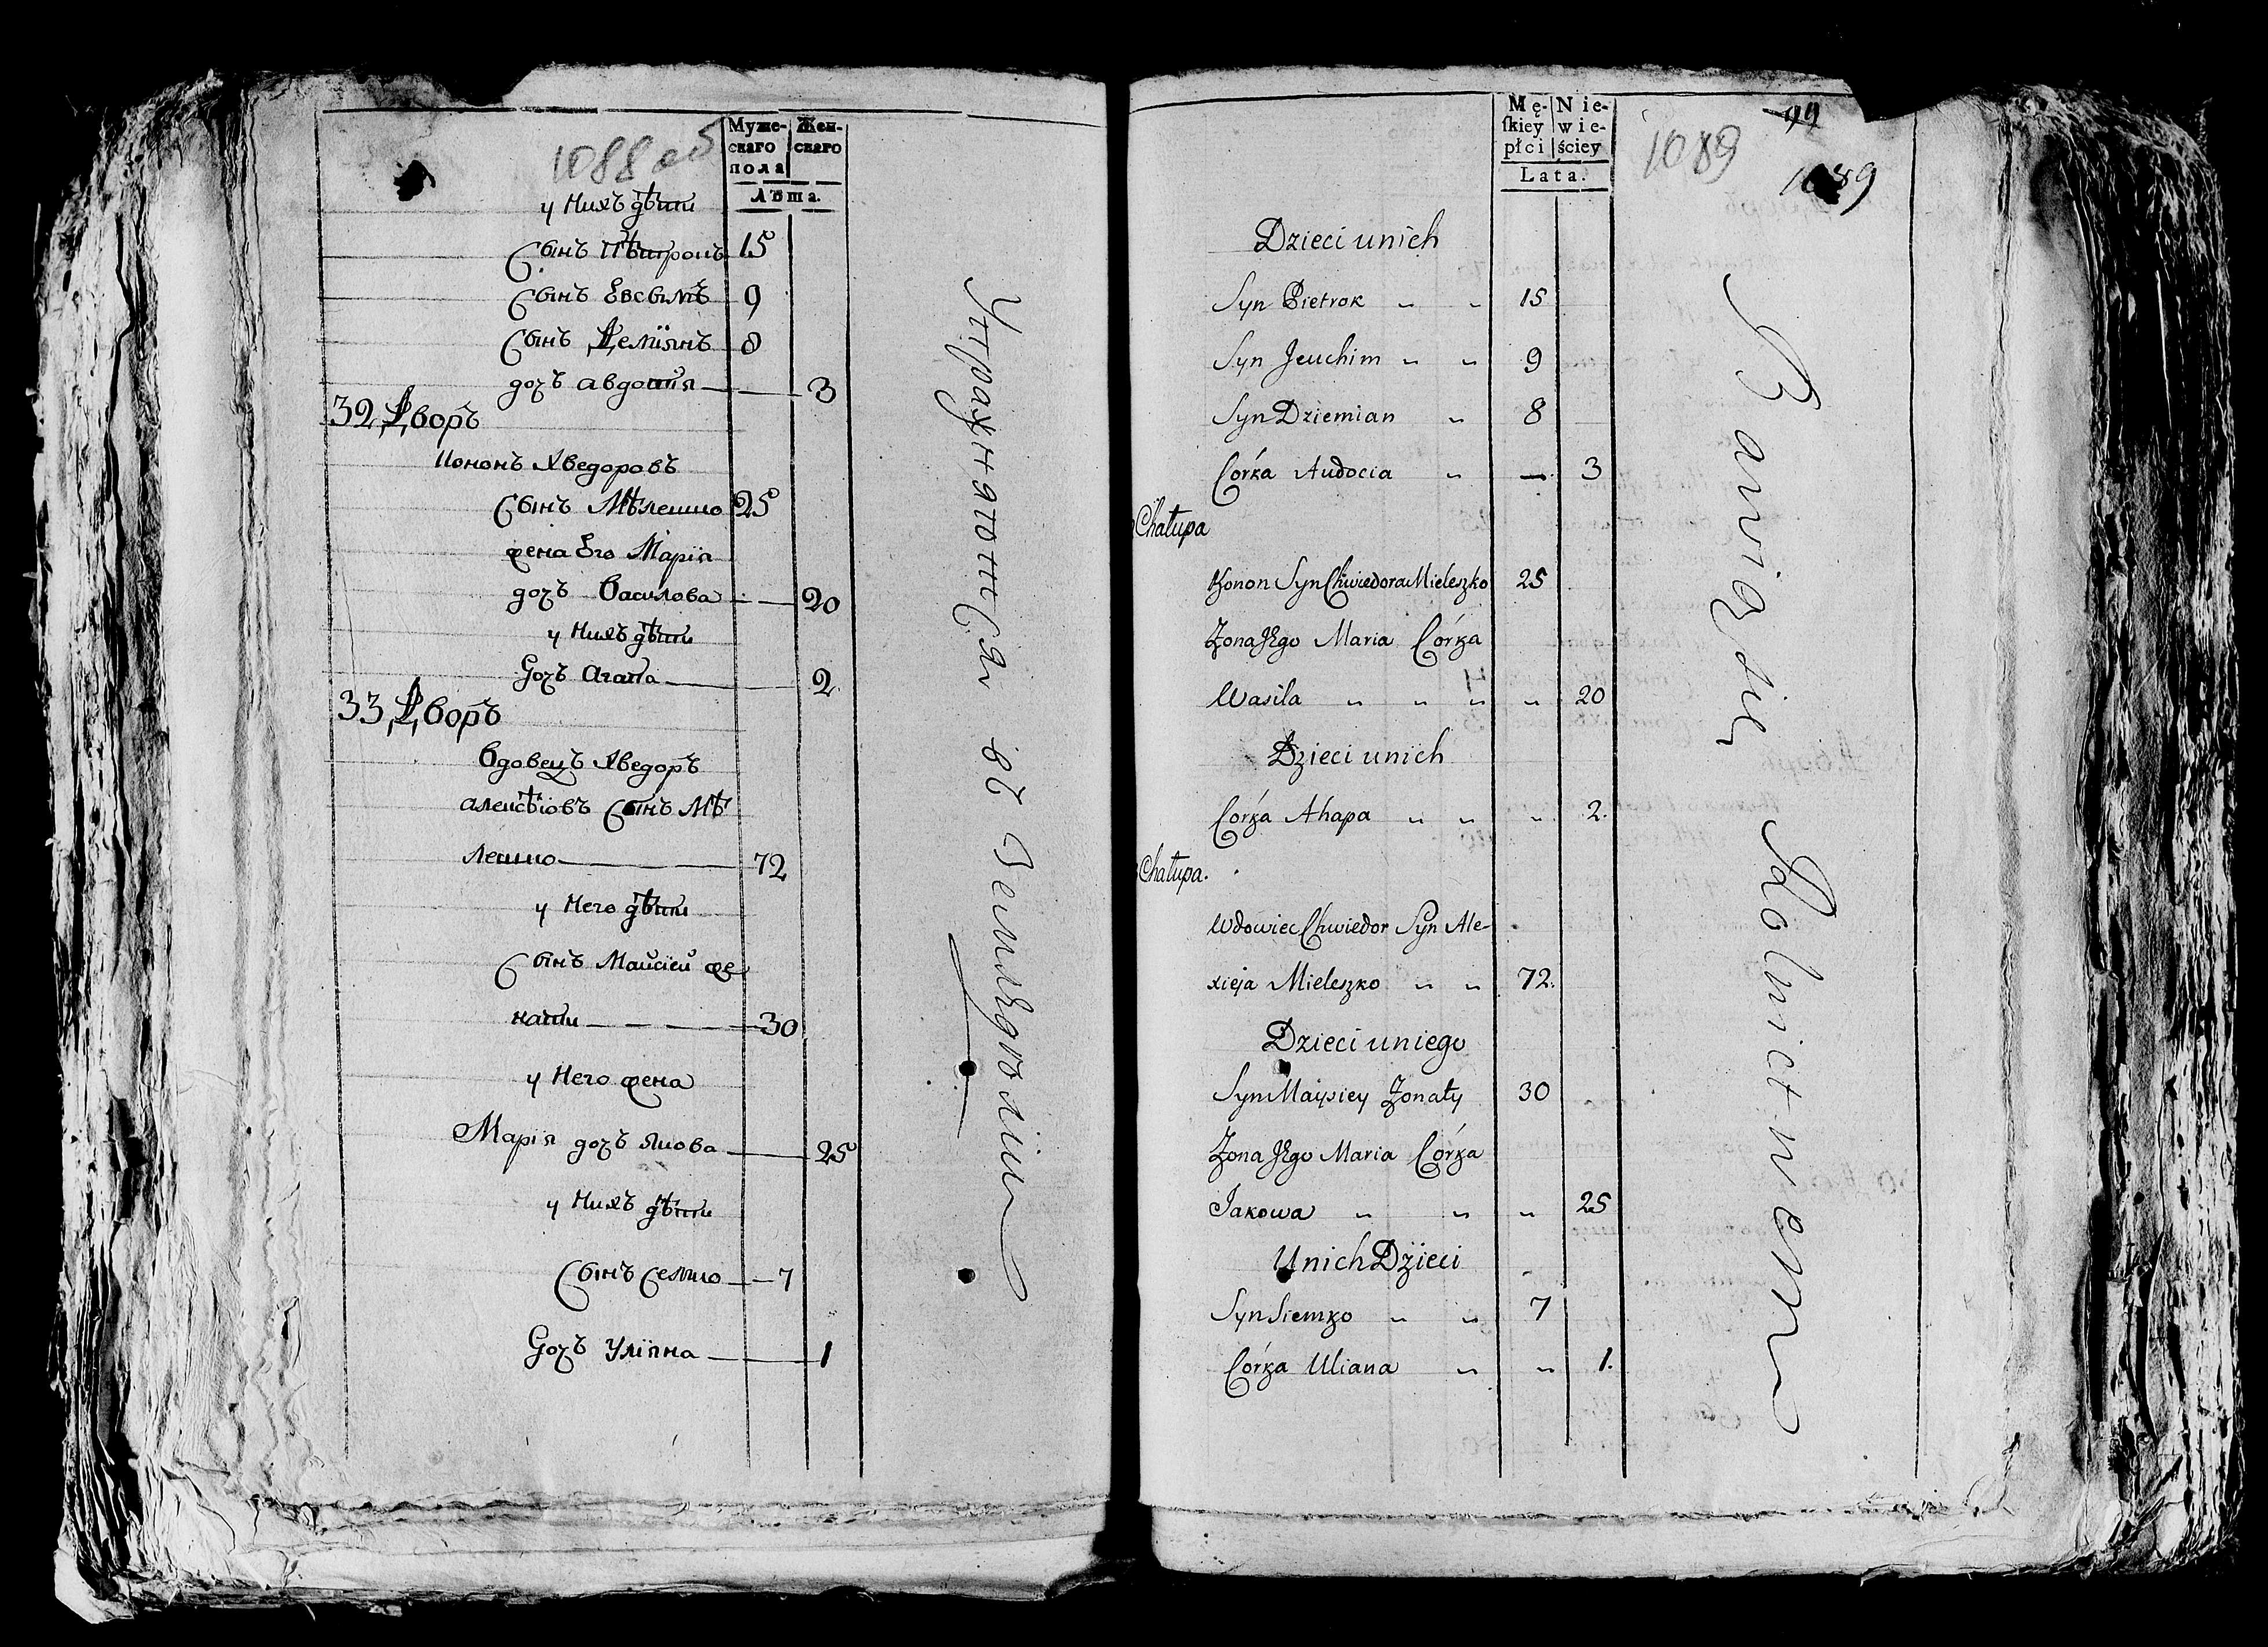 1088 об
Муже-
скаго
пола
Жен-
скаго
Лѣта.
у нихъ дѣти
Сынъ Пѣтрокъ 15
Сынъ Евсвимъ 9
Сынъ Деміянъ 8
дочъ Авдотія — 3
32 Дворъ
Кононъ Хведоровъ
Сынъ Мѣлешко 25
жена Его Марія
дочъ Василова — 20
у нихъ дѣти
Дочъ Агапа — 2
33 Дворъ
Вдовецъ Хведоръ
Алексѣіовъ Сынъ Мѣ
лешко — 72
у Него дѣти
Сынъ Майсіей же
нати — 30
у Него жена
Марія дочъ Якова — 25
у нихъ дѣти
Сынъ Семко — 7
Дочъ Уліяна — 1
Упражняются въ Земледѣліи
Mę-
skiey
płci
Nie-
wie-
ściey
Lata.
1089
99
1089
Dzieci unich
Syn Pietrok „ „ 15
Syn Jeuchim „ „ 9
Syn Dziemian „ 8
Córka Audocia „ — 3
Chałupa
Konon Syn Chwiedora Mieleszko 25
Żona Jego Maria Córka
Wasila „ „ „ „ 20
Dzieci unich
Córka Ahapa „ „ „ 2.
Chałupa.
Wdowiec Chwiedor Syn Ale-
xieja Mieleszko „ „ 72.
Dzieci uniego
Syn Maysiey Żonaty 30
Żona Jego Maria Córka
Jakowa „ „ „ 25
Unich Dzieci
Syn Siemko „ „ 7
Córka Uliana „ „ 1.
Bawią się Rolnictwem